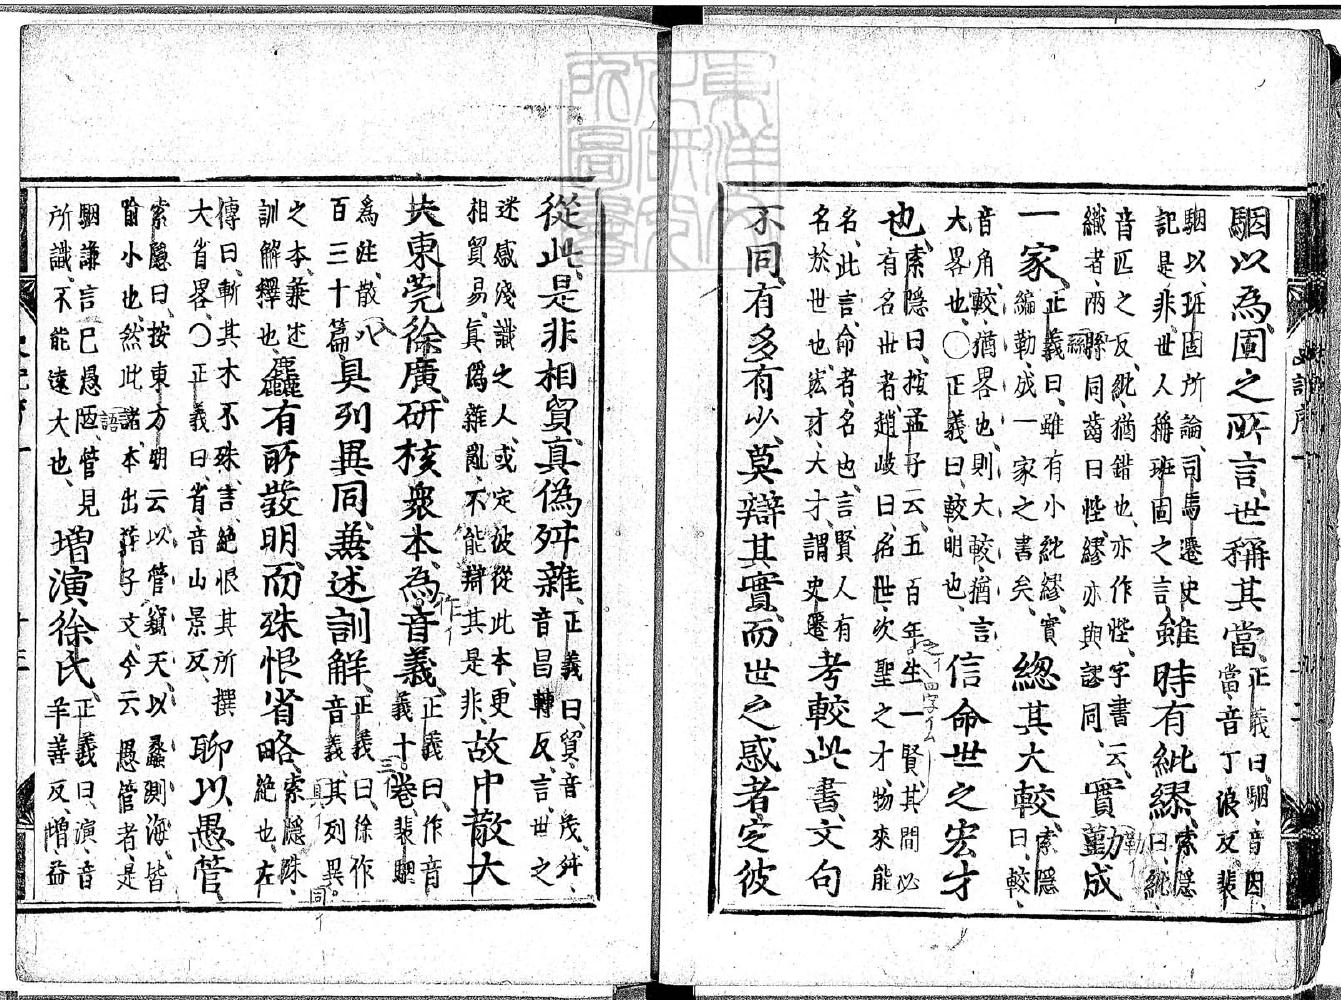 駰以為固之所言世稱其當正義曰駰音因
當音丁浪反裴
駰以班固所論司馬遷史
記是非世人稱班固之言
雖時有紕繆索隱
曰紕
音匹之反紕猶錯也亦作悂字書云
織者兩絲同齒曰悂繆亦與謬同
實勤成
一家正義曰雖有小紕繆實
編勒成一家之書矣
總其大較索隱
曰較
音角較猶畧也則大較猶言
大畧也○正義曰較明也
信命世之宏才
也索隱曰按孟子云五百年生一賢其間必
有名世者趙岐曰名世次聖之才物來能
名此言命者名也言賢人有
名於世也宏才大才謂史遷
考較此書文句
不同有多有少莫辯其實而世之惑者定彼
從此是非相貿真偽舛雜正義曰貿音茂舛
音昌轉反言世之
迷惑淺識之人或定彼從此本更
相貿易真偽雜亂不能辯其是非
故中散大
夫東莞徐廣研核衆本為音義正義曰作音
義十卷裴駰
為註散入
百三十篇
具列異同兼述訓解正義曰徐作
音義其列異
之本兼述
訓解釋也
麤有所發明而殊恨省略索隱殊
絕也左
傳曰斬其木不殊言絕恨其所撰
大省畧○正義曰省音山景反
聊以愚管
索隱曰按東方朔云以管窺天以蠡測海皆
喻小也然此諸本出莊子文今云愚管者是
駰謙言己愚陋管見
所識不能遠大也
增演徐氏正義曰演音
羊善反增益